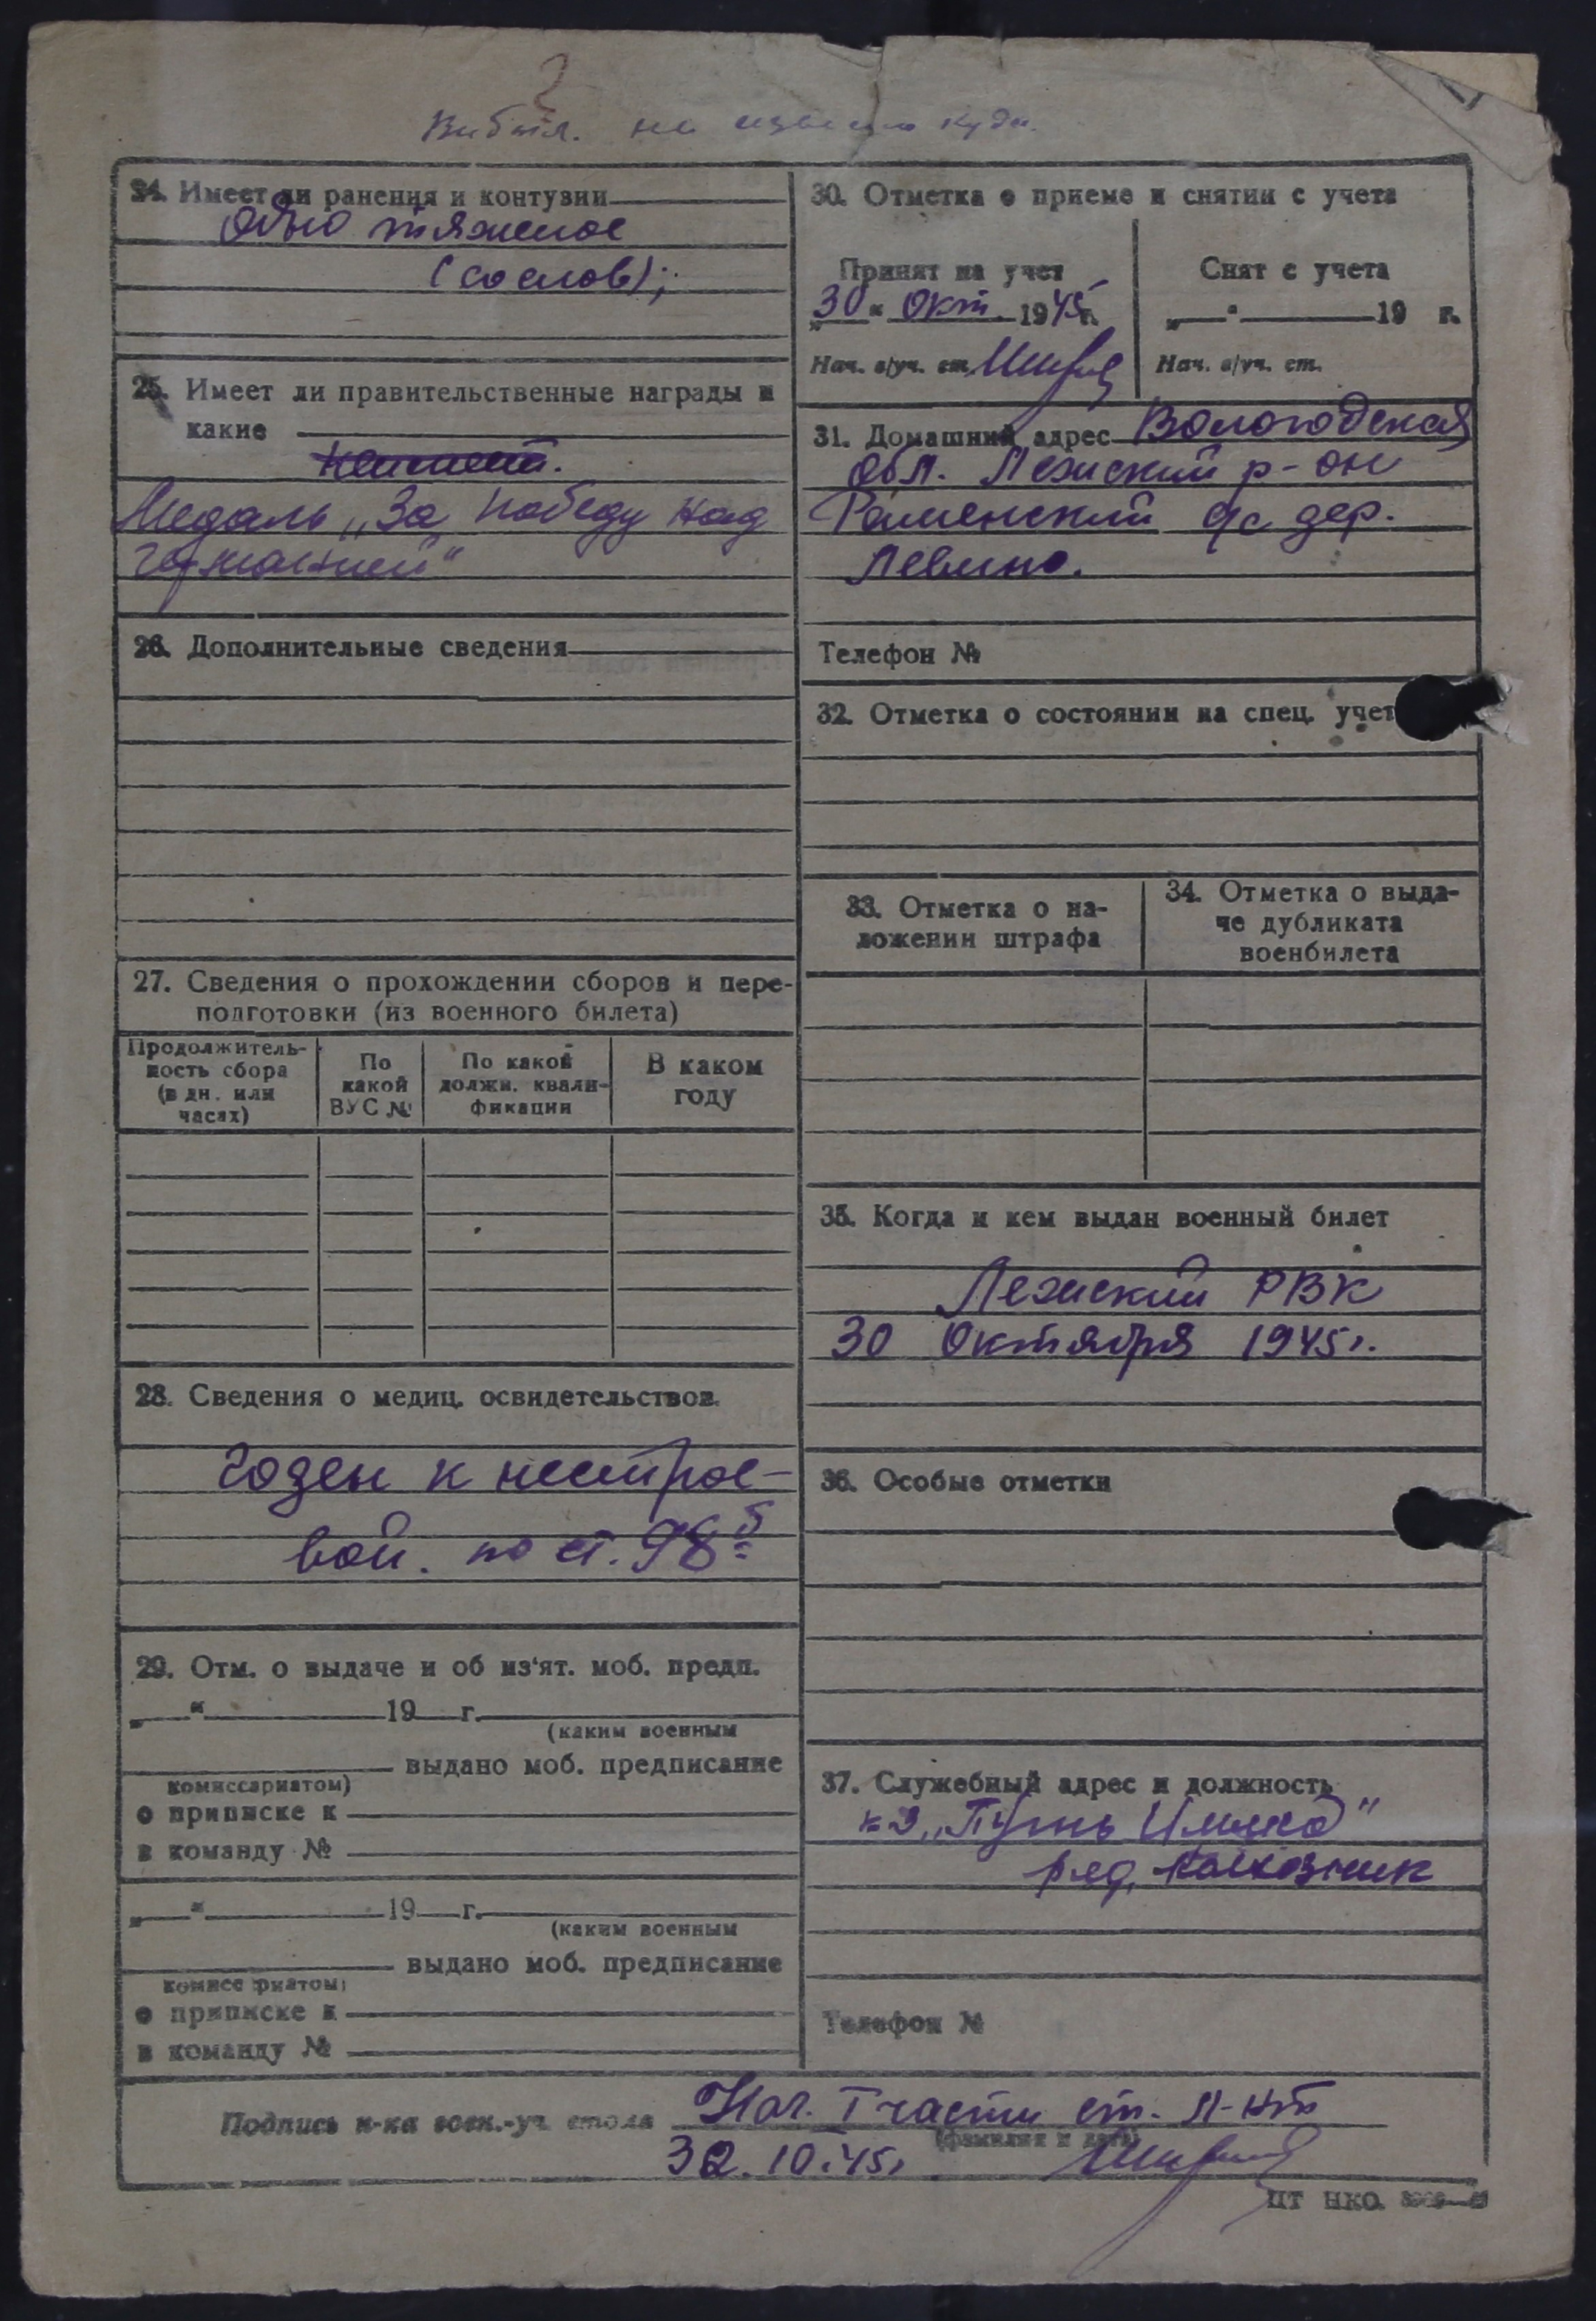 24. Имеет ли ранения и контузии
Одно тяжелое
(со слов);
25. Имеет ли правительственные награды и
какие
Медаль „За победу над
германией“
26. Дополнительные сведения
27. Сведения о прохождении сборов и пере-
подготовки (из военного билета)
Продолжитель-
ность сбора
(в дн. или
часах)
По
какой
ВУС №
По какой
должн. квали-
фикации
В каком
году
28. Сведения о медиц. освидетельствов.
Годен к нестрое-
вой. по ст. 98 б
29. Отм. о выдаче и об из‘ят. моб. предп.
„ “ 19 г.
(каким военным
выдано моб. предписание
комиссариатом)
о приписке к
в команду №
„ “ 19 г.
(каким военным
выдано моб. предписание
комиссариатом)
о приписке к
в команду №
30. Отметка о приеме и снятии с учета
Принят на учет
„30“ Окт. 1945г.
Нач. в/уч. ст.
Снят с учета
„ “ 19 г.
Нач. в/уч. ст.
31. Домашний адрес Вологодская
обл. Лежский р-он
Раменский с/с дер.
Левино.
Телефон №
32. Отметка о состоянии на спец. учет
33. Отметка о на-
ложении штрафа
34. Отметка о выда-
че дубликата
военбилета
35. Когда и кем выдан военный билет
Лежский РВК
30 Октября 1945г.
36. Особые отметки
37. Служебный адрес и должность
к-з „Путь Ильича“
ряд. колхозник
Телефон №
Подпись н-ка воен.-уч. стола Нач. I части ст. л-нт
(фамилия и дата)
30.10.45г
ЦТ НКО.